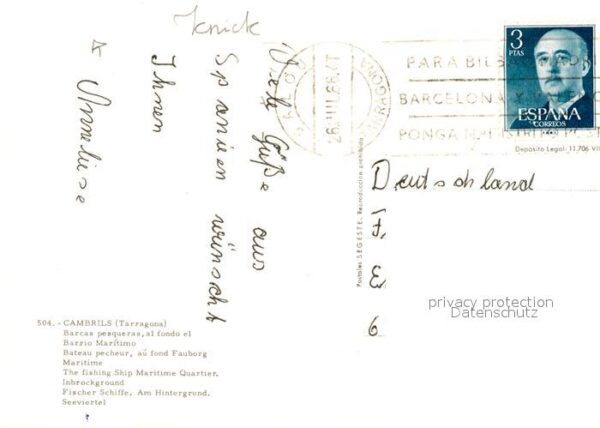 Knick
Viele Grüße aus
Spanien wünscht
Ihnen
Anneliese
3
PTAS
ESPAÑA
CORREOS
SALOU
TARRAGONA
PARA BILBAO MADRID
BARCELONA Y
PONGA N.º DISTRITO POST
Depósito Legal: 11.706 VII
Deutschland
Postales SEGESTE. Reproducción prohibida
privacy protection
Datenschutz
504. - CAMBRILS (Tarragona)
Barcas pesqueras, al fondo el
Barrio Marítimo
Bateau pecheur, aú fond Fauborg
Maritime
The fishing Ship Maritime Quartier,
Inbrockground
Fischer Schiffe, Am Hintergrund,
Seeviertel